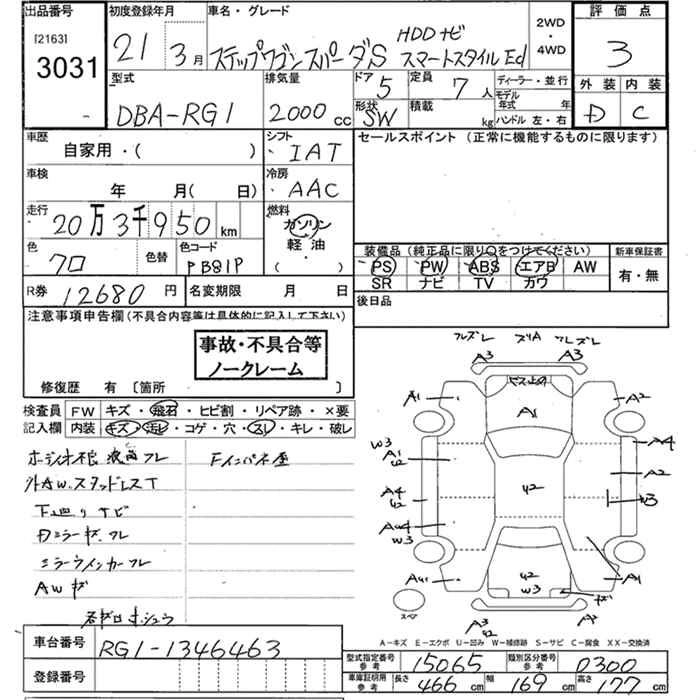 出品番号 初度登録年月 車名・グレード 2WD ・ 4WD 評価点
[2163] 3031 21年 3月 ステップワゴン スパーダS HDDナビ スマートスタイルEd 3
型式 排気量 ドア 定員 ディーラー・並行 外装 内装
DBA-RG1 2000cc 5 7人 モデル年式 年 D C
形状 SW 積載 kg ハンドル 左・右
車歴 シフト セールスポイント(正常に機能するものに限ります)
自家用・( ) IAT
車検 冷房
年 月( 日) AAC
走行 燃料
20万3千950km ガソリン
軽油
( )
色 色替 色コード 装備品(純正品に限り○をつけてください) 新車保証書
クロ PB81P PS PW ABS エアB AW 有・無
SR ナビ TV カワ
R券 12680円 名変期限 月 日 後日品
注意事項申告欄(不具合内容等は具体的に記入して下さい)
事故・不具合等
ノークレーム
修復歴 有 〔箇所 〕
検査員 FW キズ・飛石・ヒビ割・リペア跡・×要
記入欄 内装 キズ・汚レ・コゲ・穴・スレ・キレ・破レ
外AW.スタッドレスT
下廻りサビ
Dミラーキズ フレ
ミラーウインカーフレ
AWキズ
A3 A3
ビス止め
A1
A1 A2
W3 A1 U2 A4
A2
A4 U2 U2 W3
W3
A1
U2 W3
スペア
A3 U2 A2
A-キズ E-エクボ U-凹み W-補修跡 S-サビ C-腐食 XX-交換済
車台番号 RG1-1346463
型式指定番号 参考 15065 類別区分番号 参考 0300
登録番号 車庫証明用 参考 長さ 466cm 幅 169cm 高さ 177cm